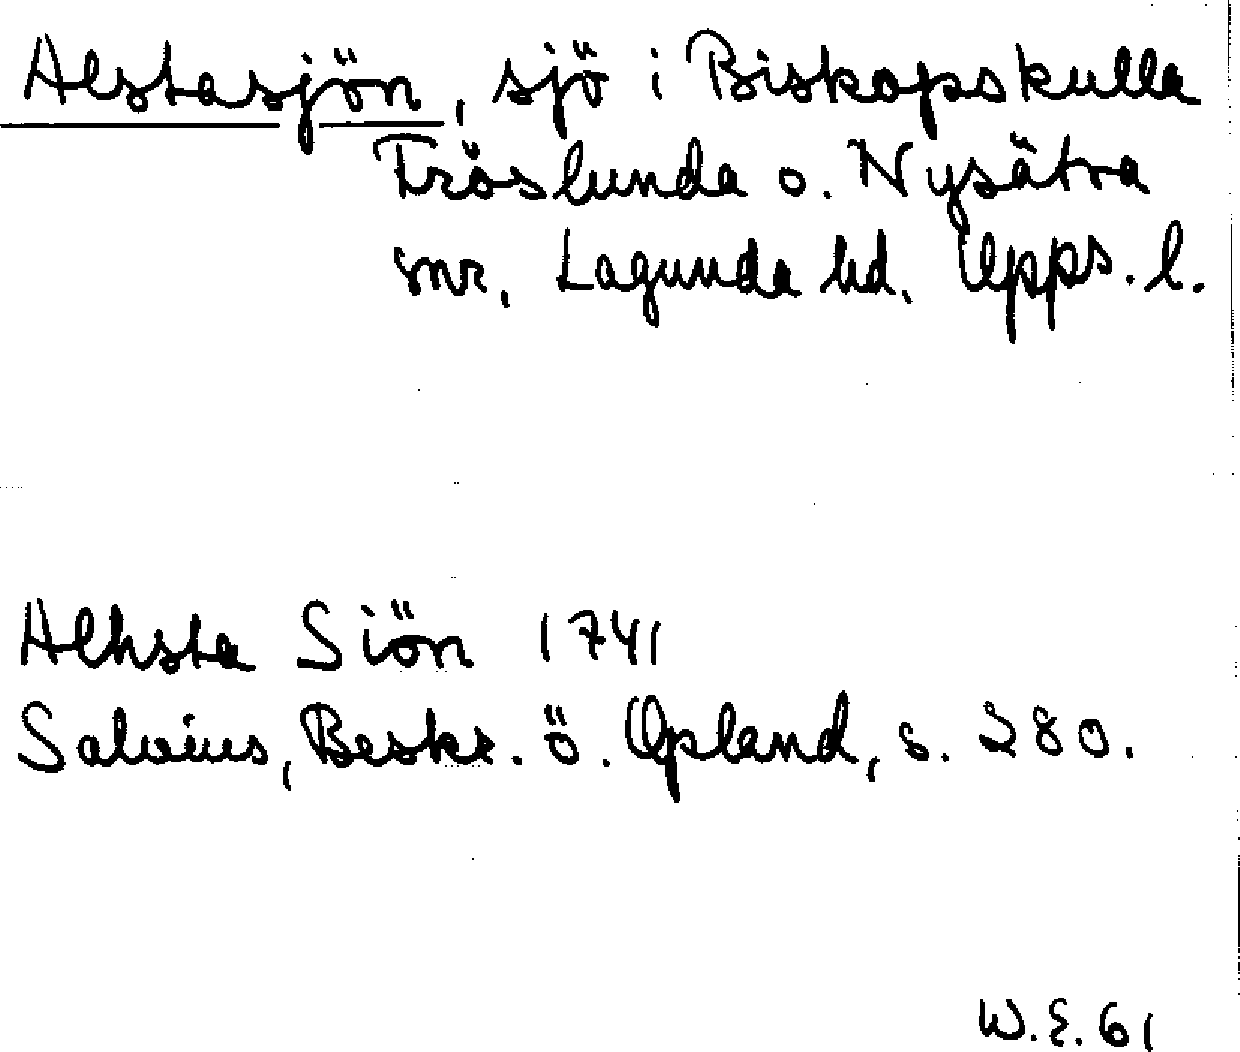 Alstasjön, sjö i Biskopskulla
Fröslunda o. Nysätra
snr. Lagunda hd. Upps. l.
Alhsta Siön 1741
Salvius, Beskr. ö. Upland, s. 280.
W. E. 61